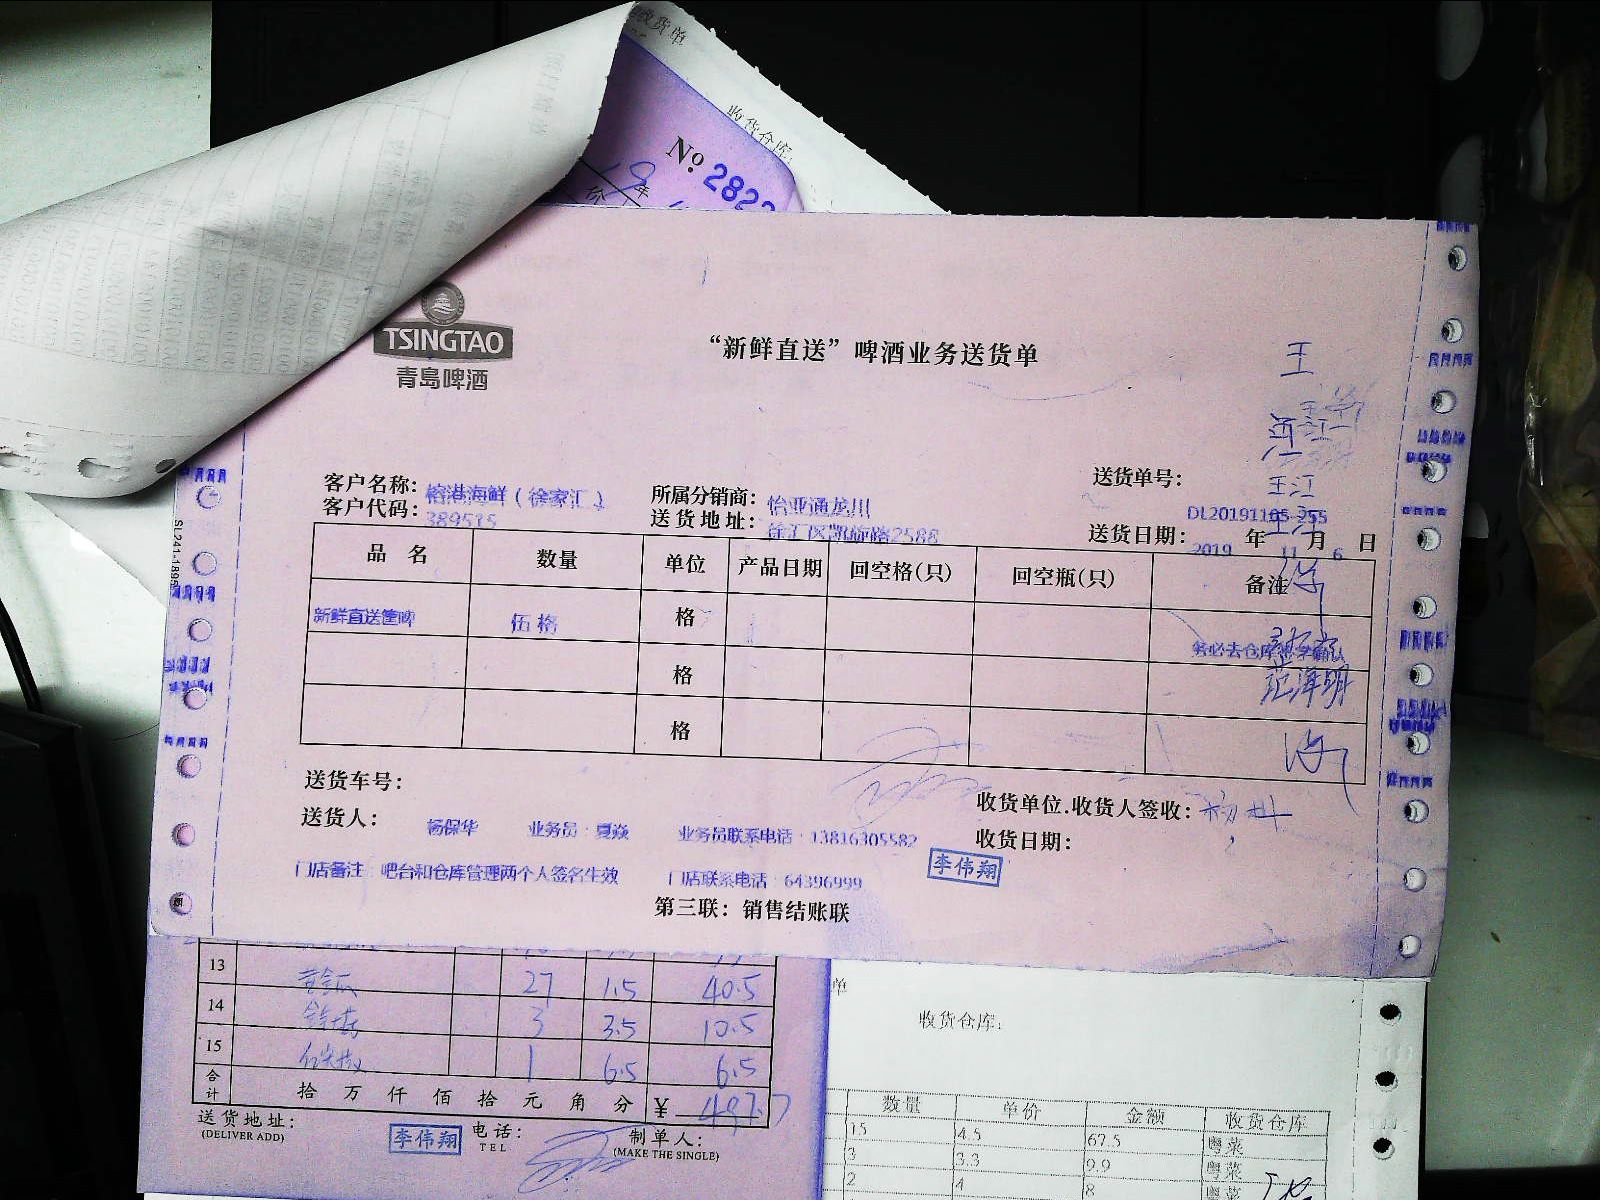 收货单
收货仓库
№ 2822
年
价
TSINGTAO
青岛啤酒
“新鲜直送”啤酒业务送货单
王
客户名称：榕港海鲜（徐家汇） 所属分销商：怡亚通龙川 送货单号：
王江
客户代码：389515 送货地址：徐汇区凯旋路2588 DL20191105-255
送货日期：2019 年 11 月 6 日
SL241-1895
品名 数量 单位 产品日期 回空格(只) 回空瓶(只) 备注
新鲜直送筐啤 伍格 格
务必去仓库签字确认
格
范海明
格
送货车号：
收货单位.收货人签收：
送货人： 杨保华 业务员：夏焱 业务员联系电话：13816305582 收货日期：
李伟翔
门店备注 吧台和仓库管理两个人签名生效 门店联系电话：64396999
第三联：销售结账联
13 27 1.5 40.5
14 3 3.5 10.5
15 1 6.5 6.5
合计 拾 万 仟 佰 拾 元 角 分 ¥ 497.7
送货地址： 电话： 制单人：
(DELIVER ADD) 李伟翔 TEL (MAKE THE SINGLE)
单
收货仓库：
数量 单价 金额 收货仓库
15 4.5 67.5 粤菜
3 3.3 9.9 粤菜
2 4 8 粤菜